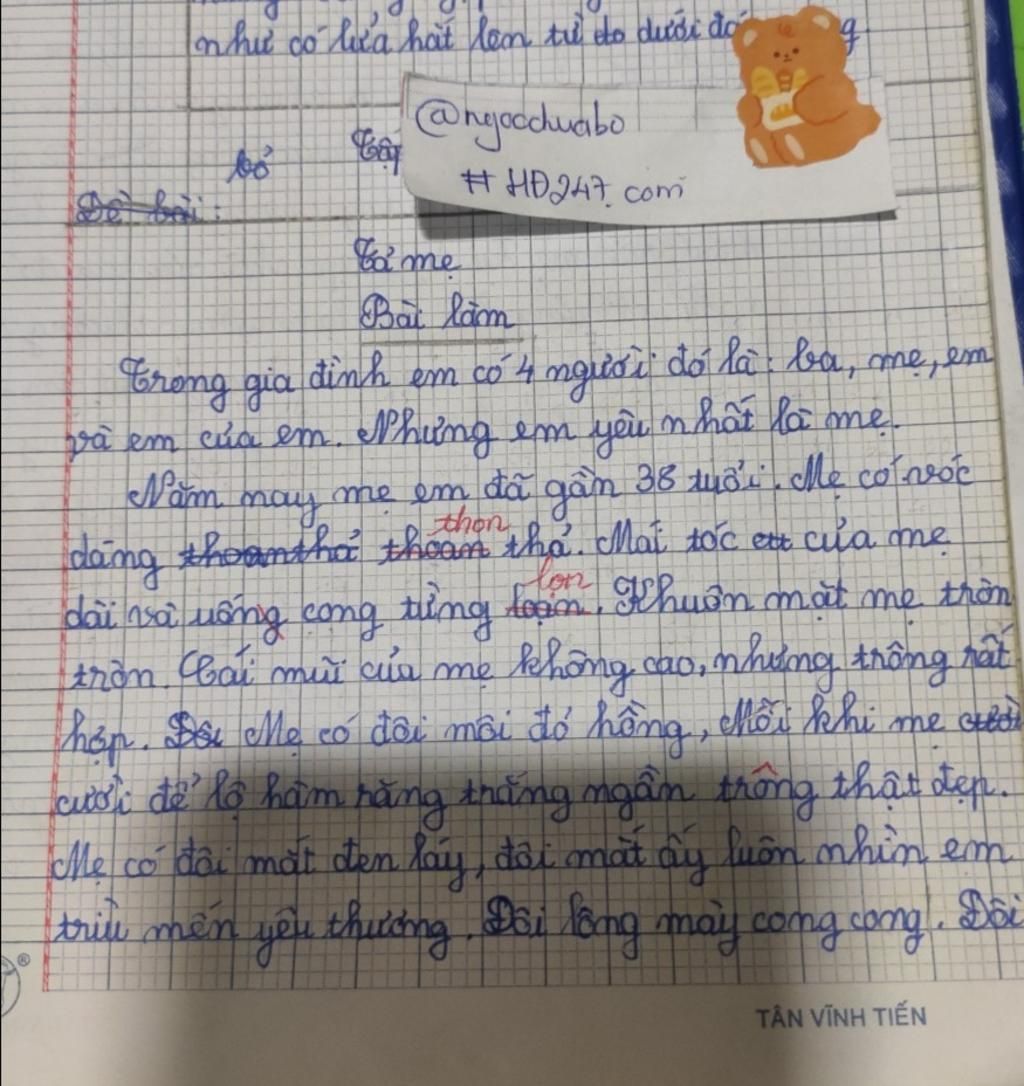 như có lửa hắt lên từ do dưới g
@ngocchuabo
#HĐ247.com
bỏ
Đề bài:
Tả mẹ
Bài làm
Trong gia đình em có 4 người đó là: ba, mẹ, em
và em của em. Nhưng em yêu nhất là mẹ.
Năm nay mẹ em đã gần 38 tuổi. Mẹ có vóc
dáng thoanthả thoan thon thả. Mái tóc của mẹ
dài và uống cong từng loạn lọn. Khuôn mặt mẹ tròn
tròn. Cái mũi của mẹ không cao, nhưng trông rất
hợp. Đôi Mẹ có đôi môi đỏ hồng, Mỗi khi mẹ cười
cười để lộ hàm răng trắng ngần trông thật đẹp.
Mẹ có đôi mắt đen láy, đôi mắt ấy luôn nhìn em
trìu mến yêu thương. Đôi lông mày cong cong. Đôi
TÂN VĨNH TIẾN